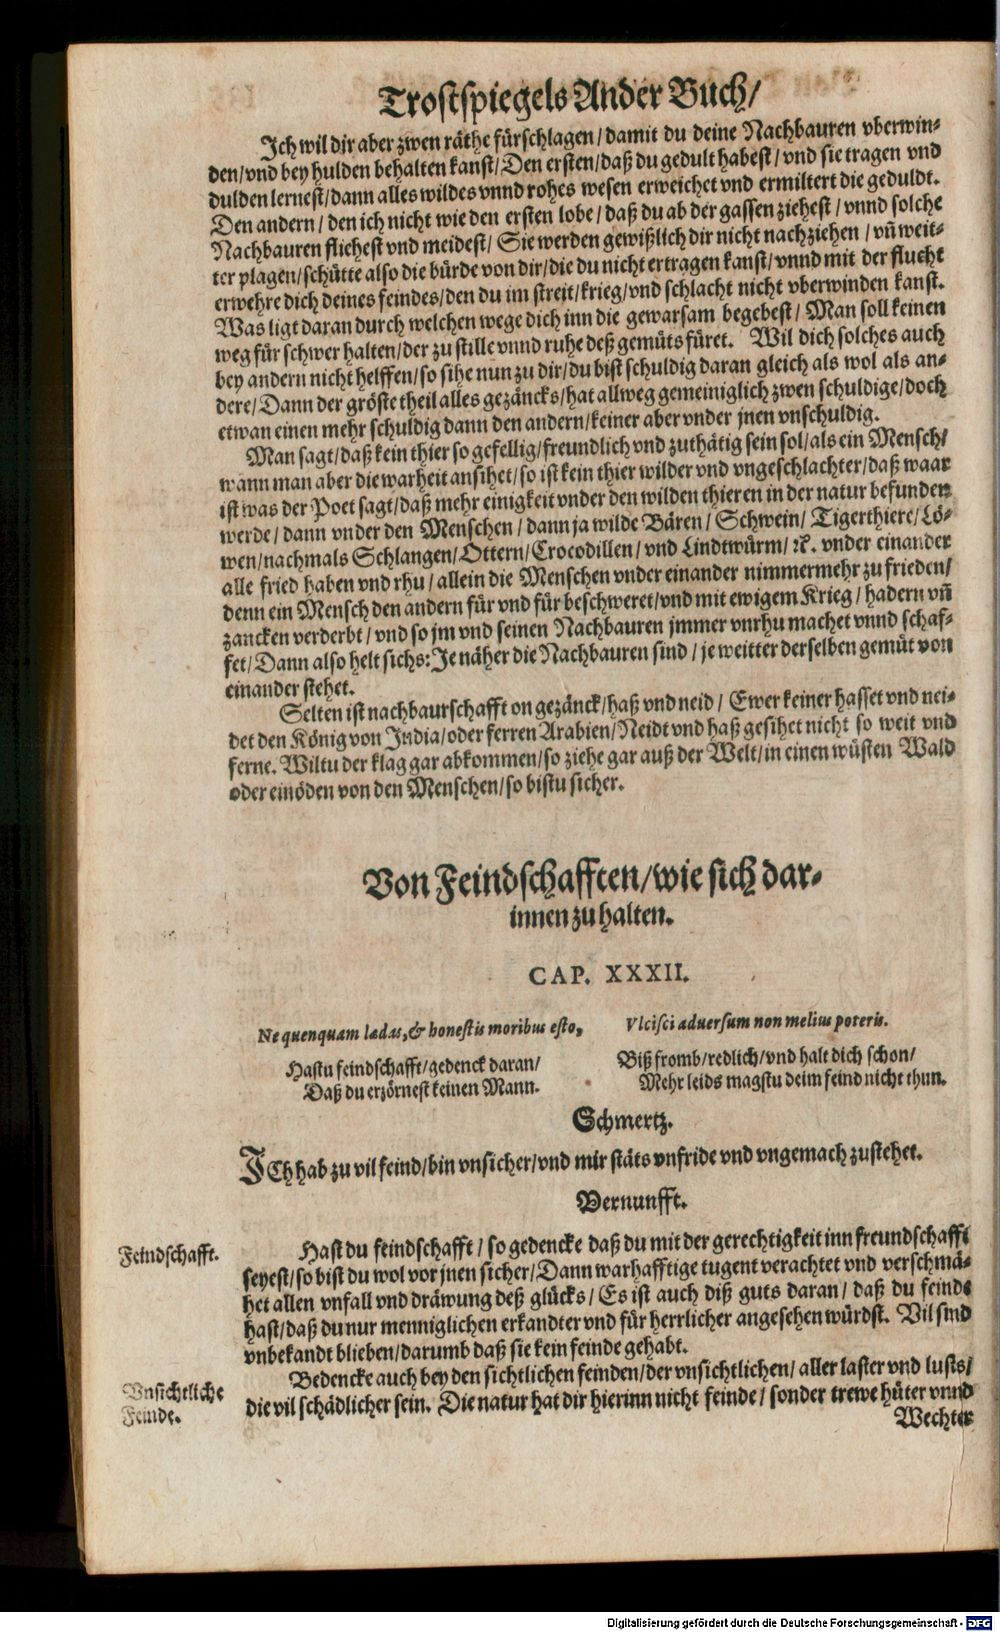 Trostspiegels Ander Buch/
Ich wil dir aber zwen räthe fürschlagen/ damit du deine Nachbauren vberwin-
den/ vnd bey hulden behalten kanst/ Den ersten/ daß du gedult habest/ vnd sie tragen vnd
dulden lernest/ dann alles wildes vnnd rohes wesen erweichet vnd ermiltert die geduldt.
Den andern/ den ich nicht wie den ersten lobe/ daß du ab der gassen ziehest/ vnnd solche
Nachbauren fliehest vnd meidest/ Sie werden gewißlich dir nicht nachziehen/ vñ weit-
ter plagen/ schütte also die bürde von dir/ die du nicht ertragen kanst/ vnnd mit der flucht
erwehre dich deines feindes/ den du im streit/ krieg/ vnd schlacht nicht vberwinden kanst.
Was ligt daran durch welchen wege dich inn die gewarsam begebest/ Man soll keinen
weg für schwer halten/ der zu stille vnnd ruhe deß gemüts füret. Wil dich solches auch
bey andern nicht helffen/ so sihe nun zu dir/ du bist schuldig daran gleich als wol als an-
dere/ Dann der gröste theil alles gezäncks/ hat allweg gemeiniglich zwen schuldige/ doch
etwan einen mehr schuldig dann den andern/ keiner aber vnder jnen vnschuldig.
Man sagt/ daß kein thier so gefellig/ freundlich vnd zuthätig sein sol/ als ein Mensch/
wann man aber die warheit ansihet/ so ist kein thier wilder vnd vngeschlachter/ daß waar
ist was der Poet sagt/ daß mehr einigkeit vnder den wilden thieren in der natur befunden
werde/ dann vnder den Menschen/ dann ja wilde Bären/ Schwein/ Tigerthiere/ Lö-
wen/ nachmals Schlangen/ Ottern/ Crocodillen/ vnd Lindtwürm/ ꝛc. vnder einander
alle fried haben vnd rhu/ allein die Menschen vnder einander nimmermehr zu frieden/
denn ein Mensch den andern für vnd für beschweret/ vnd mit ewigem Krieg/ hadern vñ
zancken verderbt/ vnd so jm vnd seinen Nachbauren jmmer vnrhu machet vnnd schaf-
fet/ Dann also helt sichs: Je näher die Nachbauren sind/ je weitter derselben gemüt von
einander stehet.
Selten ist nachbaurschafft on gezänck/ haß vnd neid/ Ewer keiner hasset vnd nei-
det den König von India/ oder ferren Arabien/ Neidt vnd haß gesihet nicht so weit vnd
ferne. Wiltu der klag gar abkommen/ so ziehe gar auß der Welt/ in einen wüsten Wald
oder einöden von den Menschen/ so bistu sicher.
Von Feindschafften/ wie sich dar-
innen zu halten.
CAP. XXXII.
Ne quenquam lædas, & honestis moribus esto,
Vlcisci aduersum non melius poteris.
Hastu feindschafft/ gedenck daran/
Daß du erzörnest keinen Mann.
Biß fromb/ redlich/ vnd halt dich schon/
Mehr leids magstu deim feind nicht thun.
Schmertz.
ICh hab zu vil feind/ bin vnsicher/ vnd mir stäts vnfride vnd vngemach zustehet.
Vernunfft.
Feindschafft.
Hast du feindschafft/ so gedencke daß du mit der gerechtigkeit inn freundschafft
seyest/ so bist du wol vor jnen sicher/ Dann warhafftige tugent verachtet vnd verschmä-
het allen vnfall vnd dräwung deß glücks/ Es ist auch diß guts daran/ daß du feinde
hast/ daß du nur menniglichen erkandter vnd für herrlicher angesehen würdst. Vil sind
vnbekandt blieben/ darumb daß sie kein feinde gehabt.
Vnsichtliche
Feinde.
Bedencke auch bey den sichtlichen feinden/ der vnsichtlichen/ aller laster vnd lusts/
die vil schädlicher sein. Die natur hat dir hierinn nicht feinde/ sonder trewe hüter vnnd
Wechter
Digitalisierung gefördert durch die Deutsche Forschungsgemeinschaft - DFG